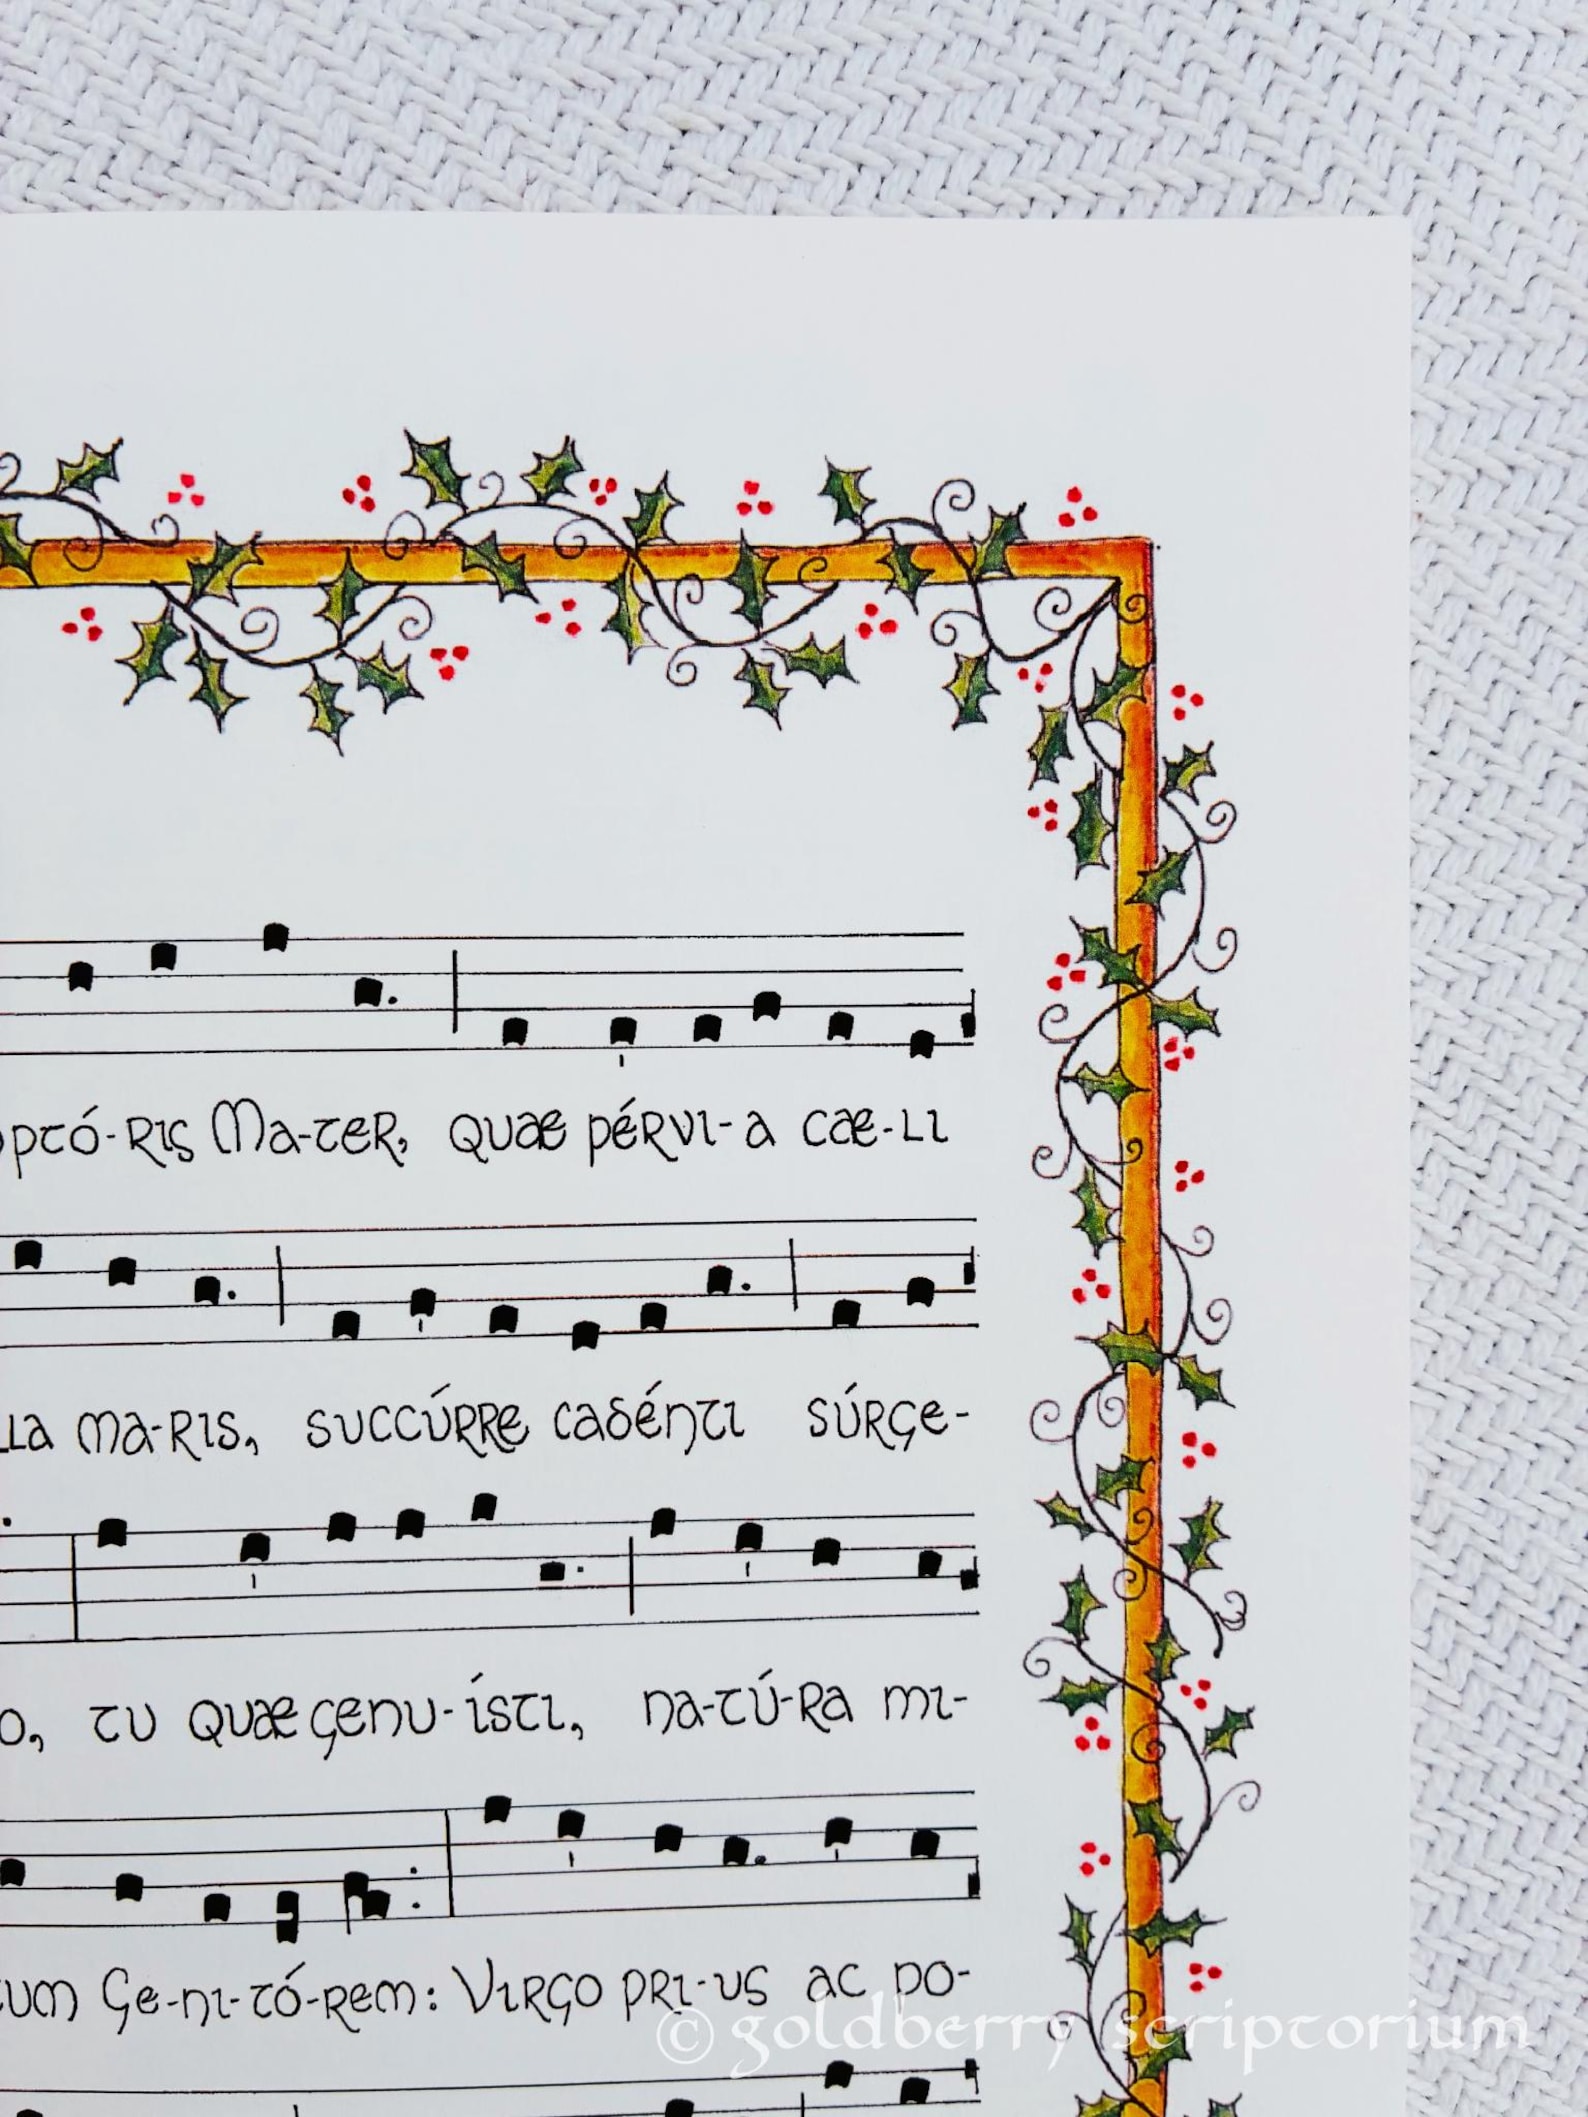 ptó-ris Ma-ter, quae pérvi-a cae-li
lla ma-ris, succúrre cadénti súrge-
o, tu quae genu-ísti, na-tú-ra mi-
tum Ge-ni-tó-rem: Virgo pri-us ac po-
© goldberry scriptorium